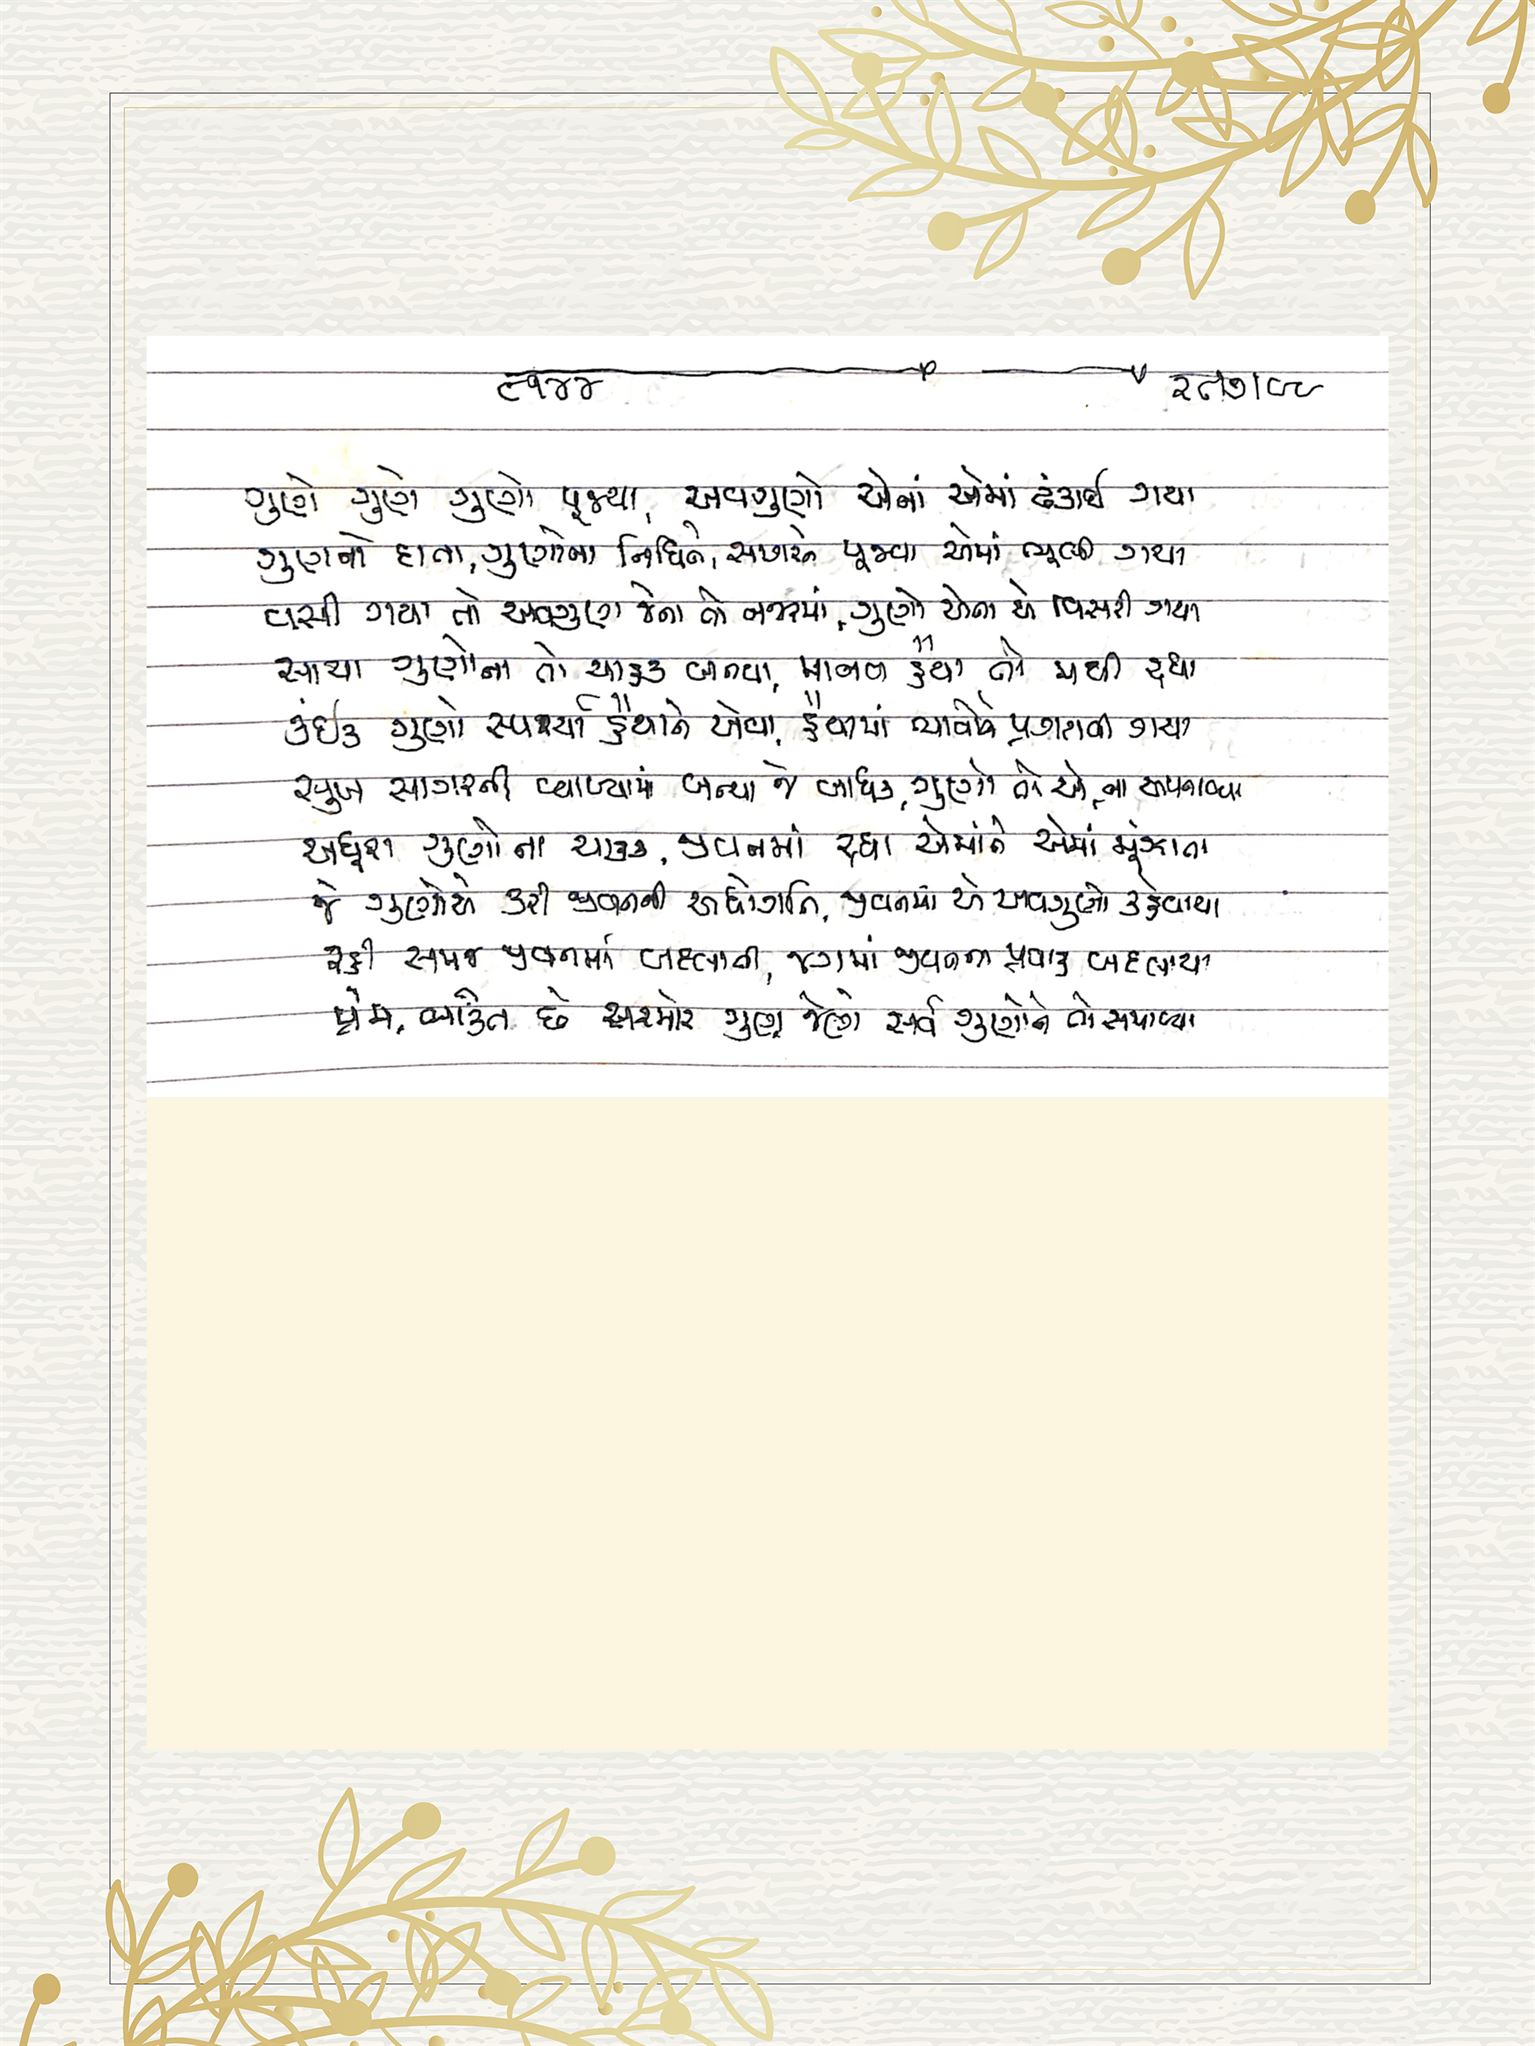 ૯૧૪૪
ગુણે ગુણે ગુણો પૂજ્યા, અવગુણો એનાં એમાં ઢંકાઈ ગયા
ગુણનો દાતા, ગુણોના નિધિને, સત્કારને પૂજવા એમાં ભૂલી ગયા
વસી ગયા તો અવગુણ જેના તો નજરમાં, ગુણો એના એ વિસરી ગયા
સાચા ગુણોના તો ચાહક બનવા, માનવ હૈયા તો મથી રહ્યા
કંઈક ગુણો સ્પર્શ્યા હૈયાને એવા, હૈયામાં ભાવોને પ્રગટાવી ગયા
સુખ સાગરની વ્યાખ્યામાં બન્યા જે બાધક, ગુણો તો એ ના અપનાવ્યા
અધૂરા ગુણોના ચાહક, જીવનમાં રહ્યા એમાંને એમાં મૂંઝાતા
જે ગુણોએ કરી જીવનની અધોગતિ, જીવનમાં એ અવગુણો કહેવાયા
રહી સમજ જીવનમાં બદલાતી, જગમાં જીવનના પ્રવાહ બદલાયા
પ્રેમ, ભક્તિ છે સરમોર ગુણ, જેણે સર્વ ગુણોને તો સમાવ્યા